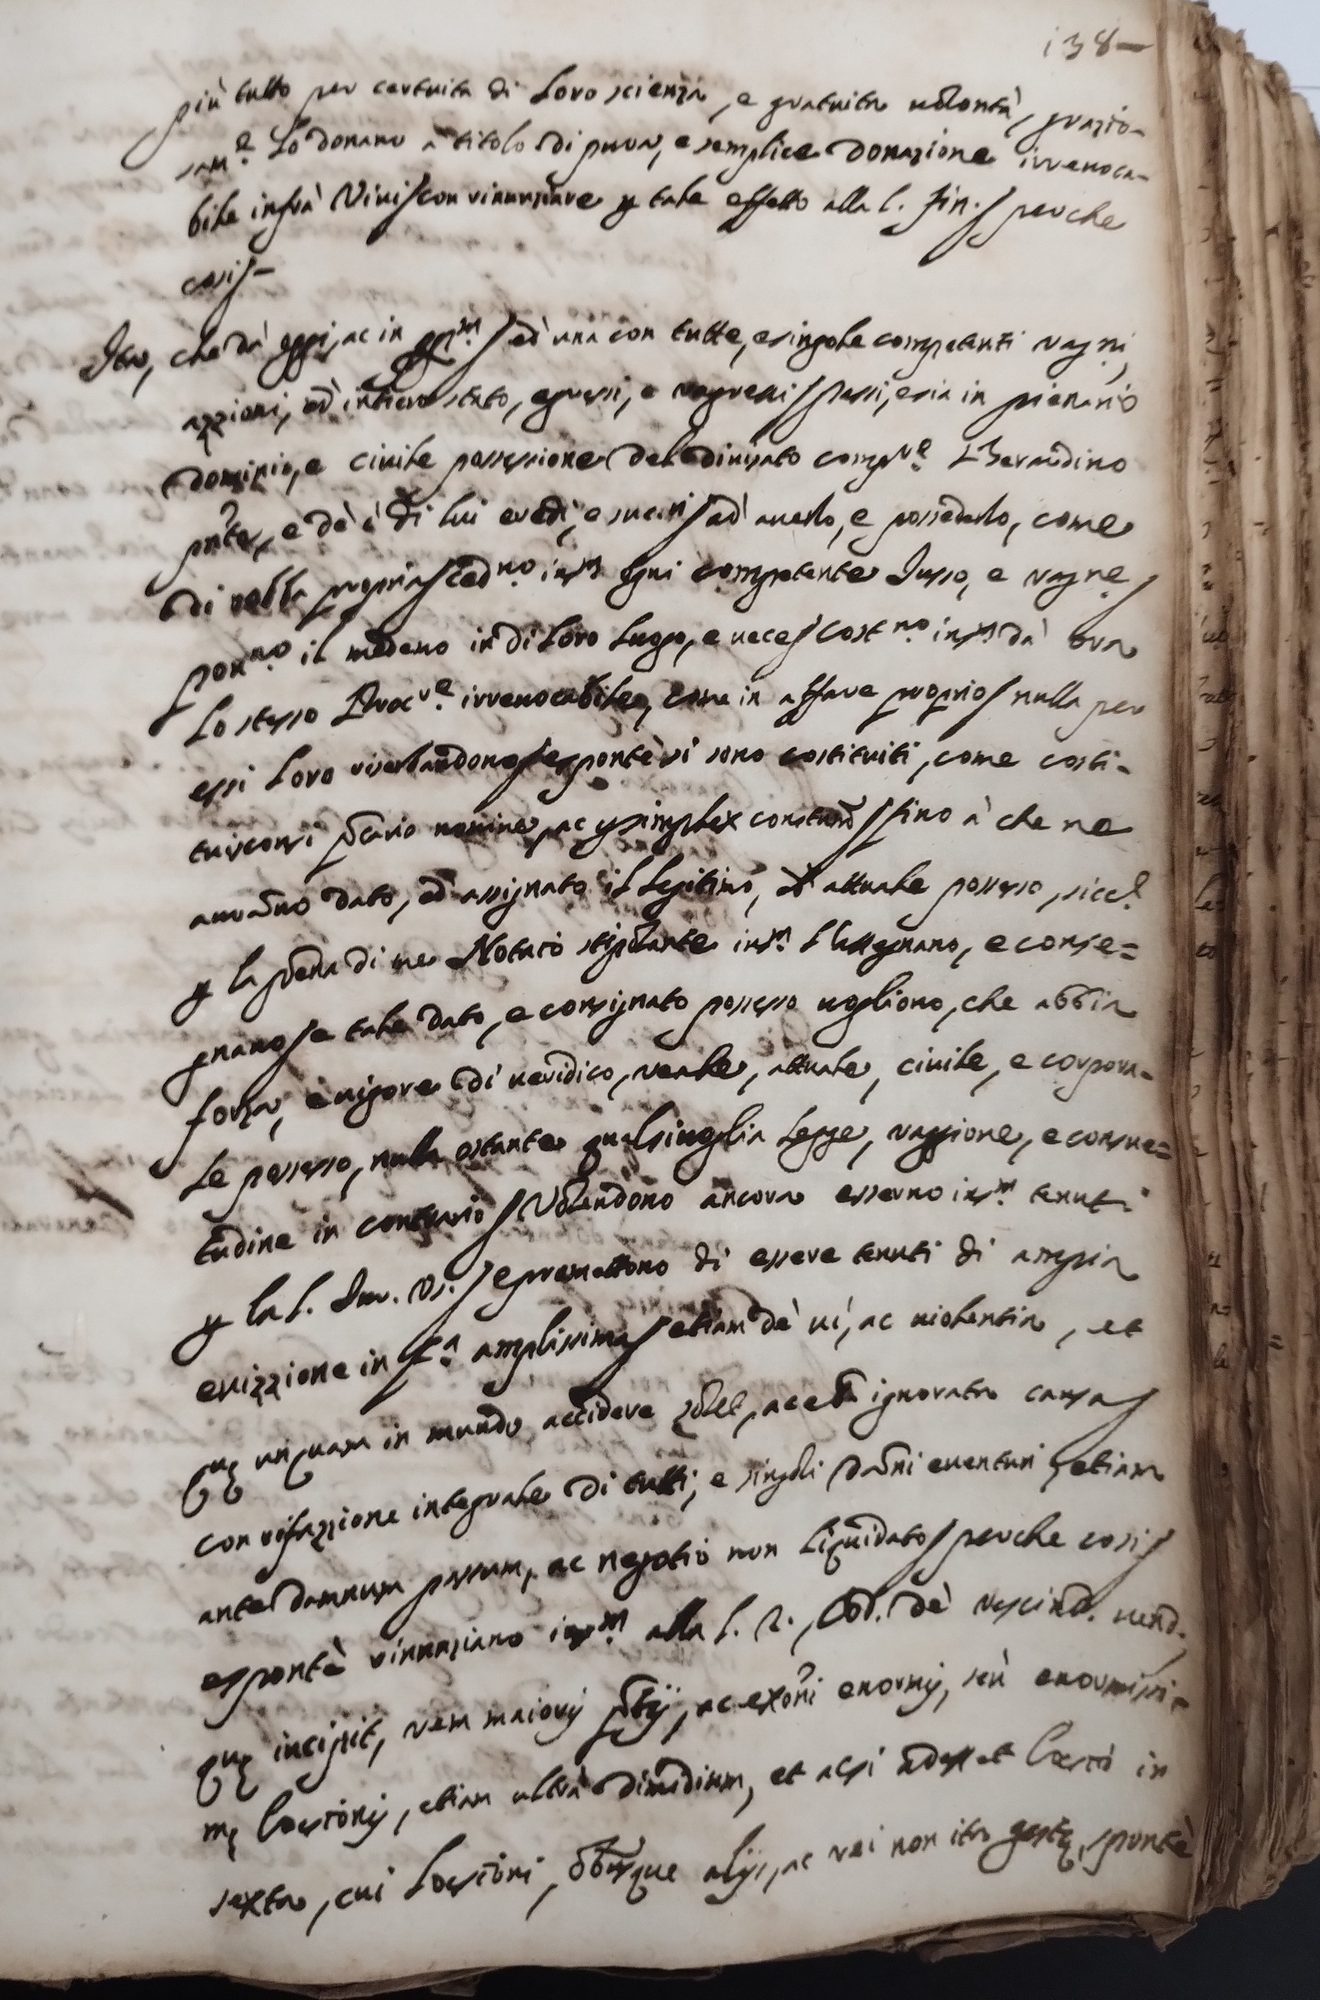 138
più tutto per certuita di Loro scienza, e gratuita volontà, grazio-
sam.e Lo donano à titolo di pura, e semplice Donazione irrevoca-
bile infrà Vivis con rinunziare p tale effetto alla l. fin. perche
cosi
Ito, che dà oggi, ac in et una con tutte, e singole competenti ragni,
azzioni, ed intiero stato, egressi, e regressi passi, e sia in pienario
dominio, e civile possessione del divisato comp.re Berardino
pnte, e dè è di lui eredi, e succ.ri ad averlo, e possederlo, come
di robba propria ced.no ins.m ogni competente Jusso, e rag.ne
pon.no il medemo in di Loro Luogo, e veces cost.no ins.m dà ora
Lo stesso Proc.re irrevocabile, come in affare proprio nulla per
essi Loro riserbandono e spontè si sono costituiti, come costi-
tuisconsi pcario nomine, ac p simplex constitum fino à che ne
avranno dato, ed assignato il legitimo, ed attuale possesso, sicc.e
p la penna di me Notaro stiplante ins.m l'assegnano, e conse=
gnano e tale dato, e consignato possesso vogliono, che abbia
forza, e vigore di veridico, reale, attuale, civile, e corpora-
Le possesso, nulla ostante qualsivoglia Legge, raggione, e consue=
tudine in contrario Volendono ancora esserno ins.m tenuti
p la l. e promettono di essere tenuti di ampia
evizzione in f.a amplissima etiam dè vi, ac violentia, et
que unquam in mundo accidere solet, ac etiam ignorata causa
con rifazzione integrale di tutti, e singoli danni eventuri etiam
ante damnum passum, ac negotio non liquidato perche cosi
e spontè rinunziano ins.m alla l. 2. Cod. dè rescind. vend.
que incipit, rem maioris ptij, ac exoni enormij, seù enormissi-
me Loesionis, etiam ultrà dimidium, et acsi adesset Loesio in
sexta, cui Loesioni, obusque alijs, ac rei non ita geste, spontè